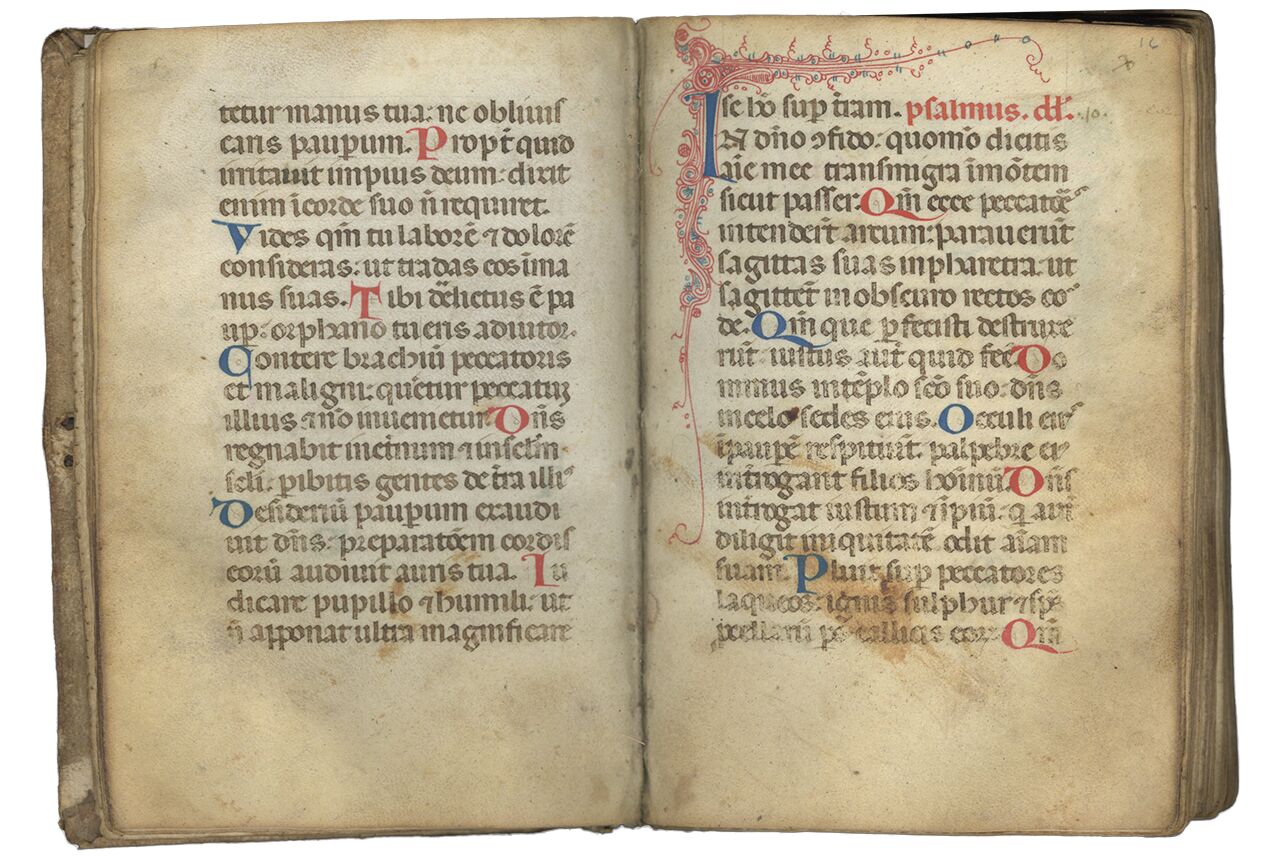 tetur manus tua: ne obliuis
caris paup̱erum. Propt̄ quid
irritauit impius deum: dixit
enim īcorde suo n̄ requiret.
Vides qm̄ tu laborē ⁊ dolorē
consideras: ut tradas eos īma
nus suas. Tibi dēlictus ē pa
up̱: orphano tu eris adiutor.
Contere brachiū peccatoris
et maligni: querētur peccatuȝ
illius ⁊ nō inuenietur. Dn̄s
regnabit inet̄num ⁊ inselm̄
sc̄li: p̱ibitis gentes de t̄ra illiꝰ
Desideriū paup̱um exaudi
uit dn̄s: preparatōem cordis
eorū audiuit auris tua. Iu
dicare pupillo ⁊ humili: ut
n̄ apponat ultra magnificare
16
se hō sup̱ t̄ram. psalmus. dd̄. .10.
IN dn̄o ꝯfido: quomō dicitis
aīe mee transmigra īmōtem
sicut passer. Qm̄ ecce peccatōēs
intenderūt arcum: parauerūt
sagittas suas inpharetra: ut
sagittēt inobscuro rectos cor
de. Qm̄ que p̱fecisti destruxe
rūt: iustus aūt quid fēc̄ Do
minus intēplo sc̄o suo: dn̄s
incelo sedes eius. Occuli eiꝰ
īpaup̱ē respiciūt: palpebre eiꝰ
int̄rogant filios hoīnū. Dn̄s
int̄rogat iustum ⁊ īpiū: q̄ aūt
diligit iniquitatē odit aīam
suam. Pluit sup̱ peccatores
laqueos: ignis sulphur ⁊ sp̄s
pcellarū ps̄ callicis eorꝝ Qm̄